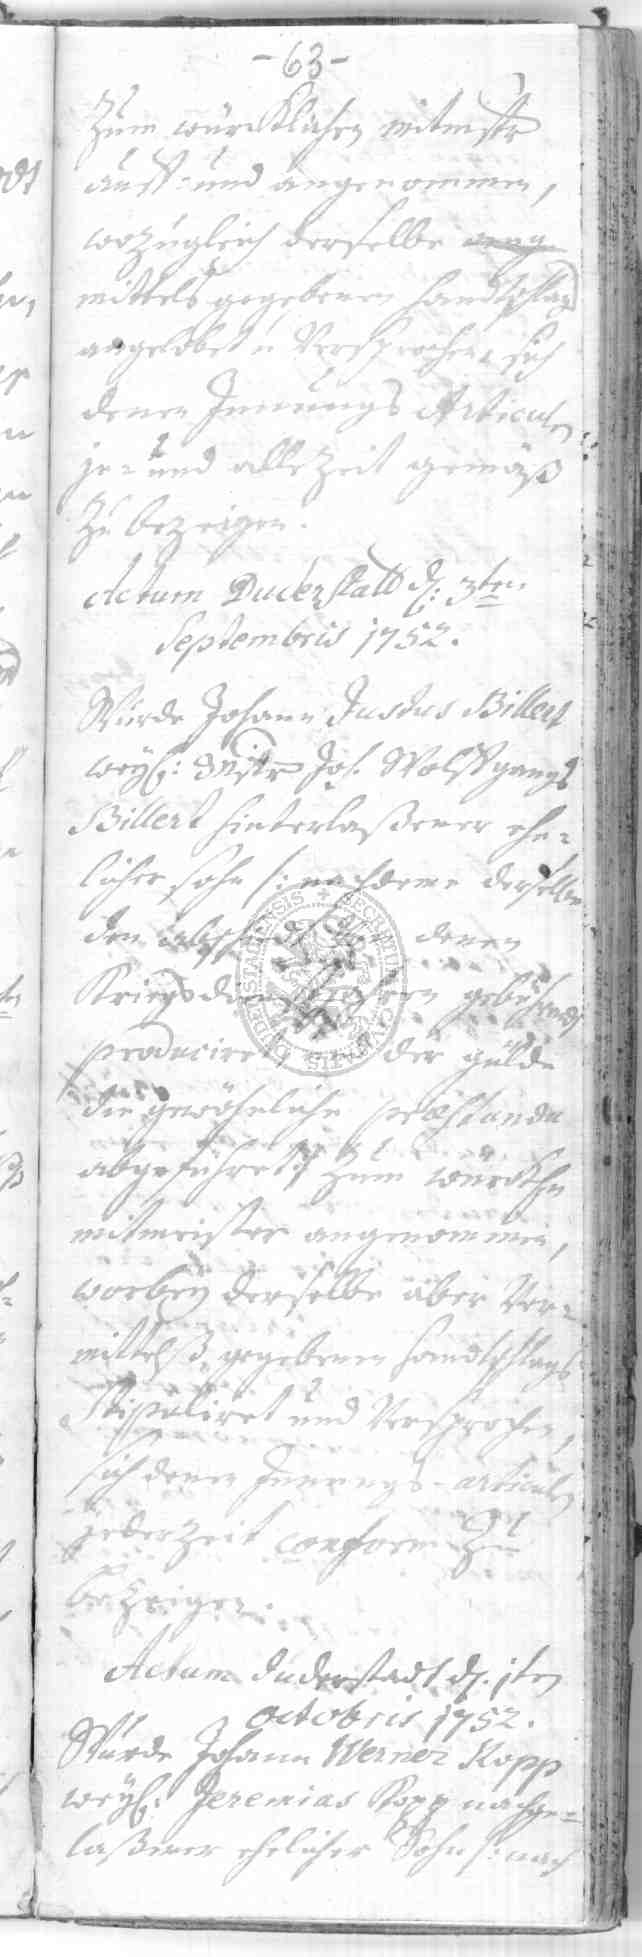 -63-
Zum würcklichen mitmstr
auff- und angenommen,
wozugleich derselbe
mittels gegebenen handtschlag
angelobet u. Versprochen sich
denen Innungs Articuln
je- und alle Zeit gemäß
zu bezeigen.
Actum Duderstatt d. 3ten
Septembris 1752.
Wurde Johann Justus Billert
weyl: Mstr Joh. Wolffgangs
Billert hinterlaßener ehe-
licher sohn /: nachdeme derselbe
den denen
Kriegsdiensten gebührend
produciret der gülde
die gewöhnliche praestanda
abgeführet :/ Zum würckln
mitmeister angenommen,
worbey derselbe aber Ver-
mittelß gegebenen handtschlags
stipuliret und Versprochen,
sich denen Innungs-articuln
jederzeit conform Zu
bezeigen.
Actum duderstadt d. 1ten
octobris 1752.
Wurde Johann Werner Kopp
weyl: Jeremias Kopp nachge-
laßener ehelicher Sohn /: nach